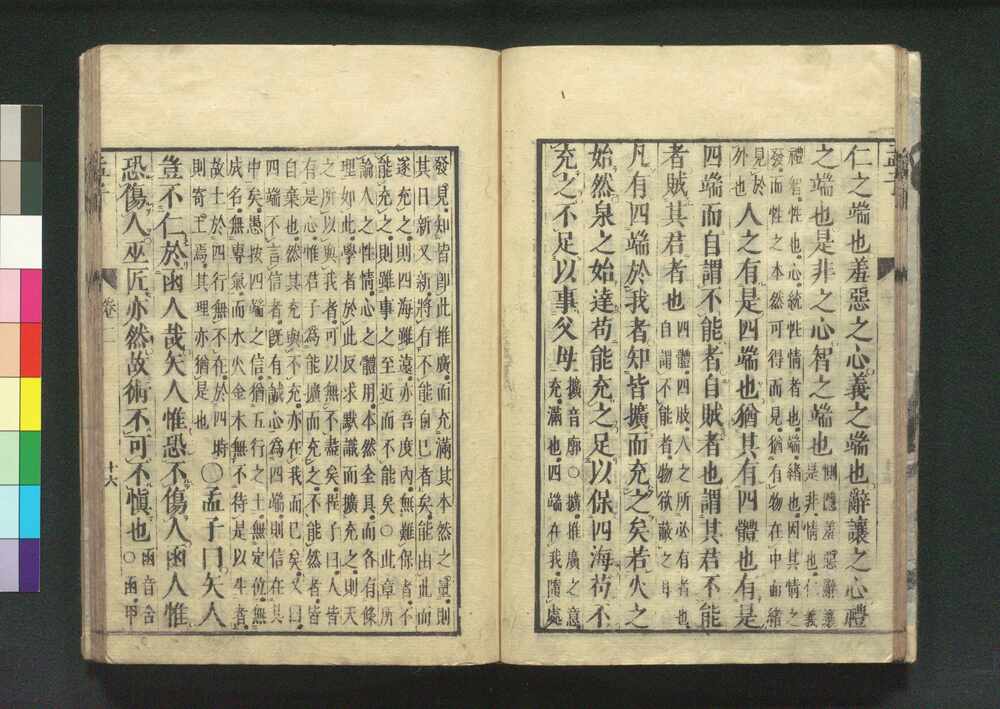 仁之端也羞惡之心義之端也辭讓之心禮
之端也是非之心智之端也
惻隱羞惡辭讓
是非情也仁義
禮智性也心統性情者也端緒也因其情之
發而性之本然可得而見猶有物在中而緒
見於
外也
人之有是四端也猶其有四體也有是
四端而自謂不能者自賊者也謂其君不能
者賊其君者也
四體四肢人之所必有者也
自謂不能者物欲蔽之耳
凡有四端於我者知皆擴而充之矣若火之
始然泉之始達苟能充之足以保四海苟不
充之不足以事父母
擴音廓○擴推廣之意
充滿也四端在我隨處
發見知皆即此推廣而充滿其本然之量則
其日新又新將有不能自已者矣能由此而
遂充之則四海雖遠亦吾度內無難保者不
能充之則雖事之至近而不能矣○此章所
論人之性情心之體用本然全具而各有條
理如此學者於此反求默識而擴充之則天
之所以與我者可以無不盡矣程子曰人皆
有是心惟君子為能擴而充之不能然者皆
自棄也然其充與不充亦在我而已矣又曰
四端不言信者既有誠心為四端則信在其
中矣愚按四端之信猶五行之土無定位無
成名無專氣而水火金木無不待是以生者
故土於四行無不在於四時
則寄王焉其理亦猶是也
○孟子曰矢人
豈不仁於函人哉矢人惟恐不傷人函人惟
恐傷人巫匠亦然故術不可不慎也
函音含
○函甲
孟子
卷二
十六